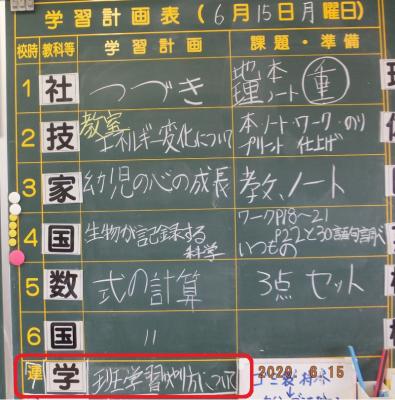 学習計画表(6月15日月曜日)
校時 教科等 学習計画 課題・準備
1 社 つづき 地理 本 ノート 重
2 技 教室 エネルギー変化について 本・ノート・ワーク・のり プリント仕上げ
3 家 幼児の心の成長 教、ノート
4 国 生物が記録する科学 ワークP18~21 P22と30語句調べ いつもの
5 数 式の計算 3点セット
6 国 〃
学 班学習のやり方について
2020 6.15